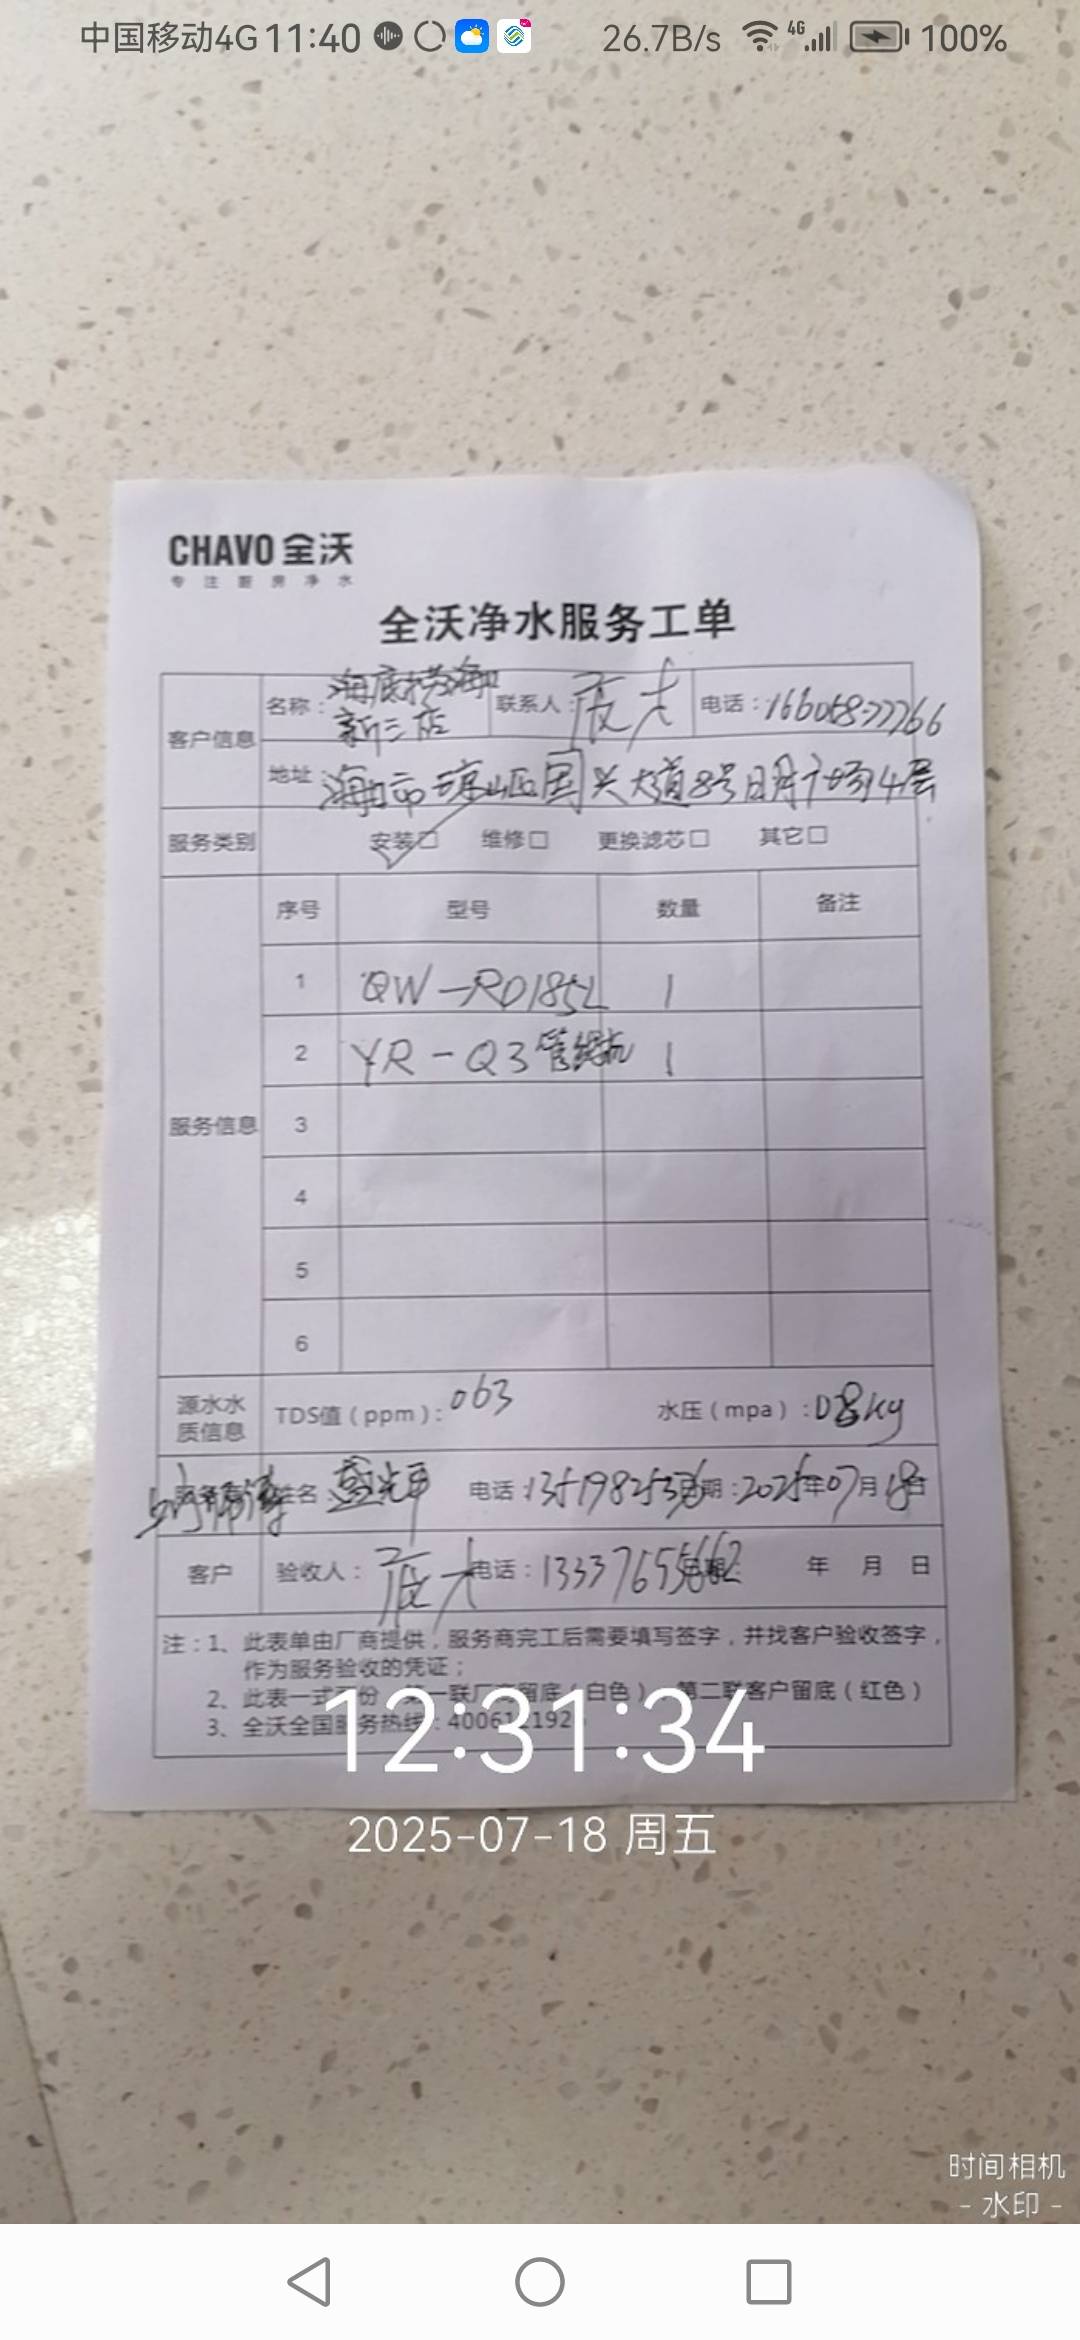 中国移动4G 11:40 26.7B/s 4G 100%
CHAVO 全沃
专注厨房净水
全沃净水服务工单
客户信息 名称：海底捞海口新三店 联系人： 电话：
地址：海口市琼山区国兴大道8号日月广场4层
服务类别 安装 维修 更换滤芯 其它
序号 型号 数量 备注
1 QW-RO185L 1
2 YR-Q3管线机 1
服务信息 3
4
5
6
源水水质信息 TDS值（ppm）：063 水压（mpa）：
姓名 电话： 日期：2025年07月18日
客户 验收人： 电话： 年 月 日
注：1、此表单由厂商提供，服务商完工后需要填写签字，并找客户验收签字，
作为服务验收的凭证；
2、此表一式 份 第一联厂商留底（白色） 第二联客户留底（红色）
3、全沃全国服务热线：
12:31:34
2025-07-18 周五
时间相机
- 水印 -